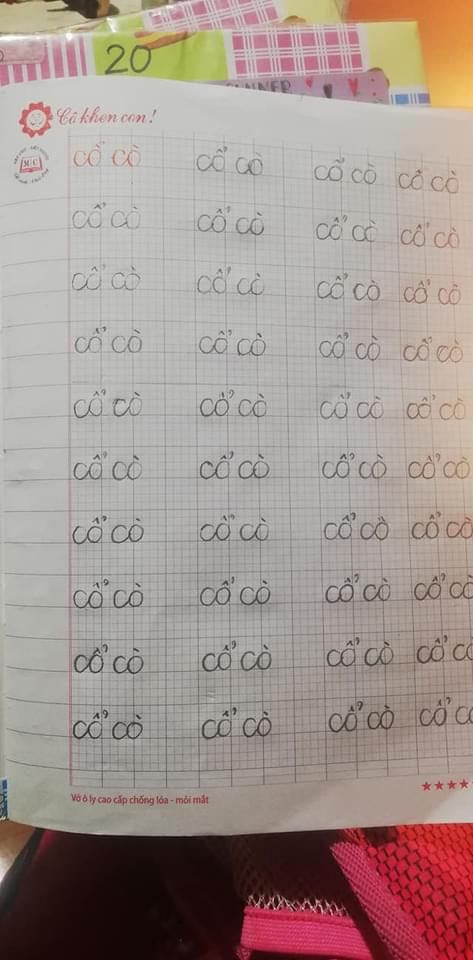 20
NNER
Cô khen con!
cổ cò cổ cò cổ cò cổ cò
cổ cò cổ cò cổ cò cổ cò
cổ cò cổ cò cổ cò cổ cò
cổ cò cổ cò cổ cò cổ cò
cổ cò cổ cò cổ cò cổ cò
cổ cò cổ cò cổ cò cổ cò
cổ cò cổ cò cổ cò cổ cò
cổ cò cổ cò cổ cò cổ cò
cổ cò cổ cò cổ cò cổ c
cổ cò cổ cò cổ cò cổ c
Vở ô ly cao cấp chống lóa - mỏi mắt